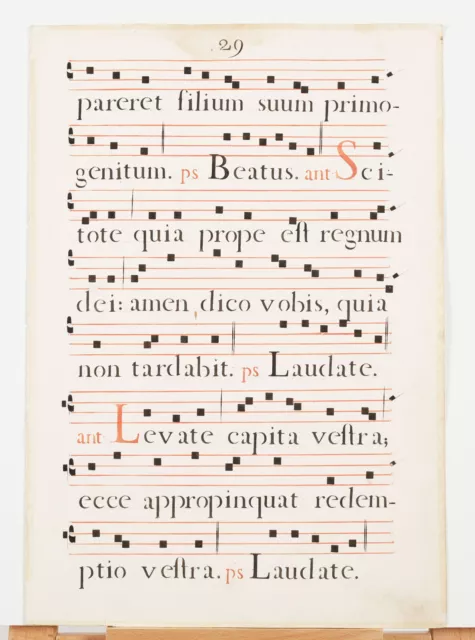 29
pareret ſilium suum primo-
genitum. ps Beatus. ant Sci-
tote quia prope eſt regnum
dei: amen dico vobis, quia
non tardabit. ps Laudate.
ant Levate capita veſtra;
ecce appropinquat redem-
ptio veſtra. ps Laudate.